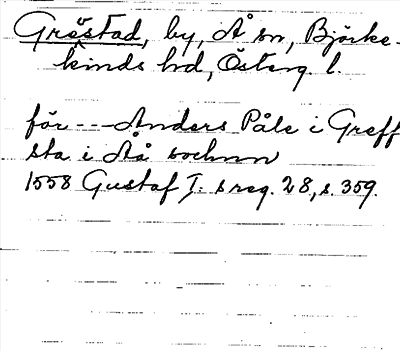 Gröstad, by, Å sn, Björke-
kinds hd, Österg. l.
för --- Anders Påle i Greff
sta i Åå sochnn
1558 Gustaf I:s reg. 28, s. 359.